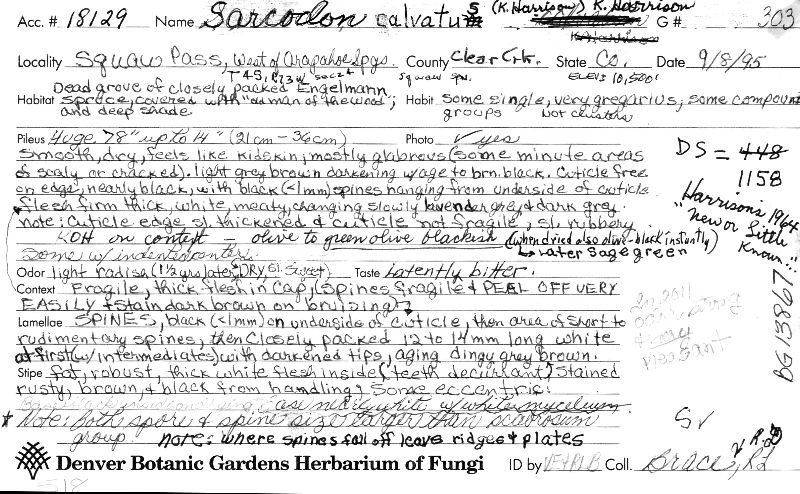 Acc. # 18129 Name Sarcodon calvatus (K. Harrison) K. Harrison G # 303
Locality Squaw Pass, West of Arapahoe Spgs. County Clear Crk. State Co. Date 9/8/95
T4S, R73W sec 24 Squaw Spr. ELEV: 10,500'
Dead grove of closely packed Engelmann
Habitat spruce, covered with "old man of the wood"; Habit some single, very gregarius, some compound
and deep shade. groups not clusters
Pileus Huge 78" up to 14" (21cm-36cm) Photo ✓ yes
Smooth, dry, feels like kidskin, mostly glabrous (some minute areas
of scaly or cracked). light grey brown darkening w/age to brn. black. Cuticle free
on edge, nearly black, with black (<1mm) spines hanging from underside of cuticle
flesh firm thick, white, meaty, changing slowly lavender grey & dark grey.
note: Cuticle edge sl. thickened & cuticle not fragile, sl. rubbery
KOH on context - olive to green olive blackish (when dried also olive-black instantly)
Some w/ indented centers. later sage green
DS = 448
1158
Harrison's 1964
"New or Little
Known..."
Odor light radish (1½ yrs later DRY, Sl. Sweet) Taste Latently bitter.
Context Fragile, thick flesh in cap, (spines fragile & PEEL OFF VERY
EASILY & stain dark brown on bruising)
BG 13867
In 2011
Lamellae SPINES, black (<1mm) on underside of cuticle, then area of short to
rudimentary spines, then closely packed 12 to 14mm long white
at first (w/ intermediates) with darkened tips, aging dingy grey brown.
Stipe fat, robust, thick white flesh inside (teeth decurrant) Stained
rusty, brown & black from handling; Some eccentric.
Base mostly white w/ white mycelium.
* Note: both spore & spine size larger than scabrosum
group Note: where spines fall off leave ridges & plates
Sv
Denver Botanic Gardens Herbarium of Fungi ID by VE & RLB Coll. Brace, RL
518